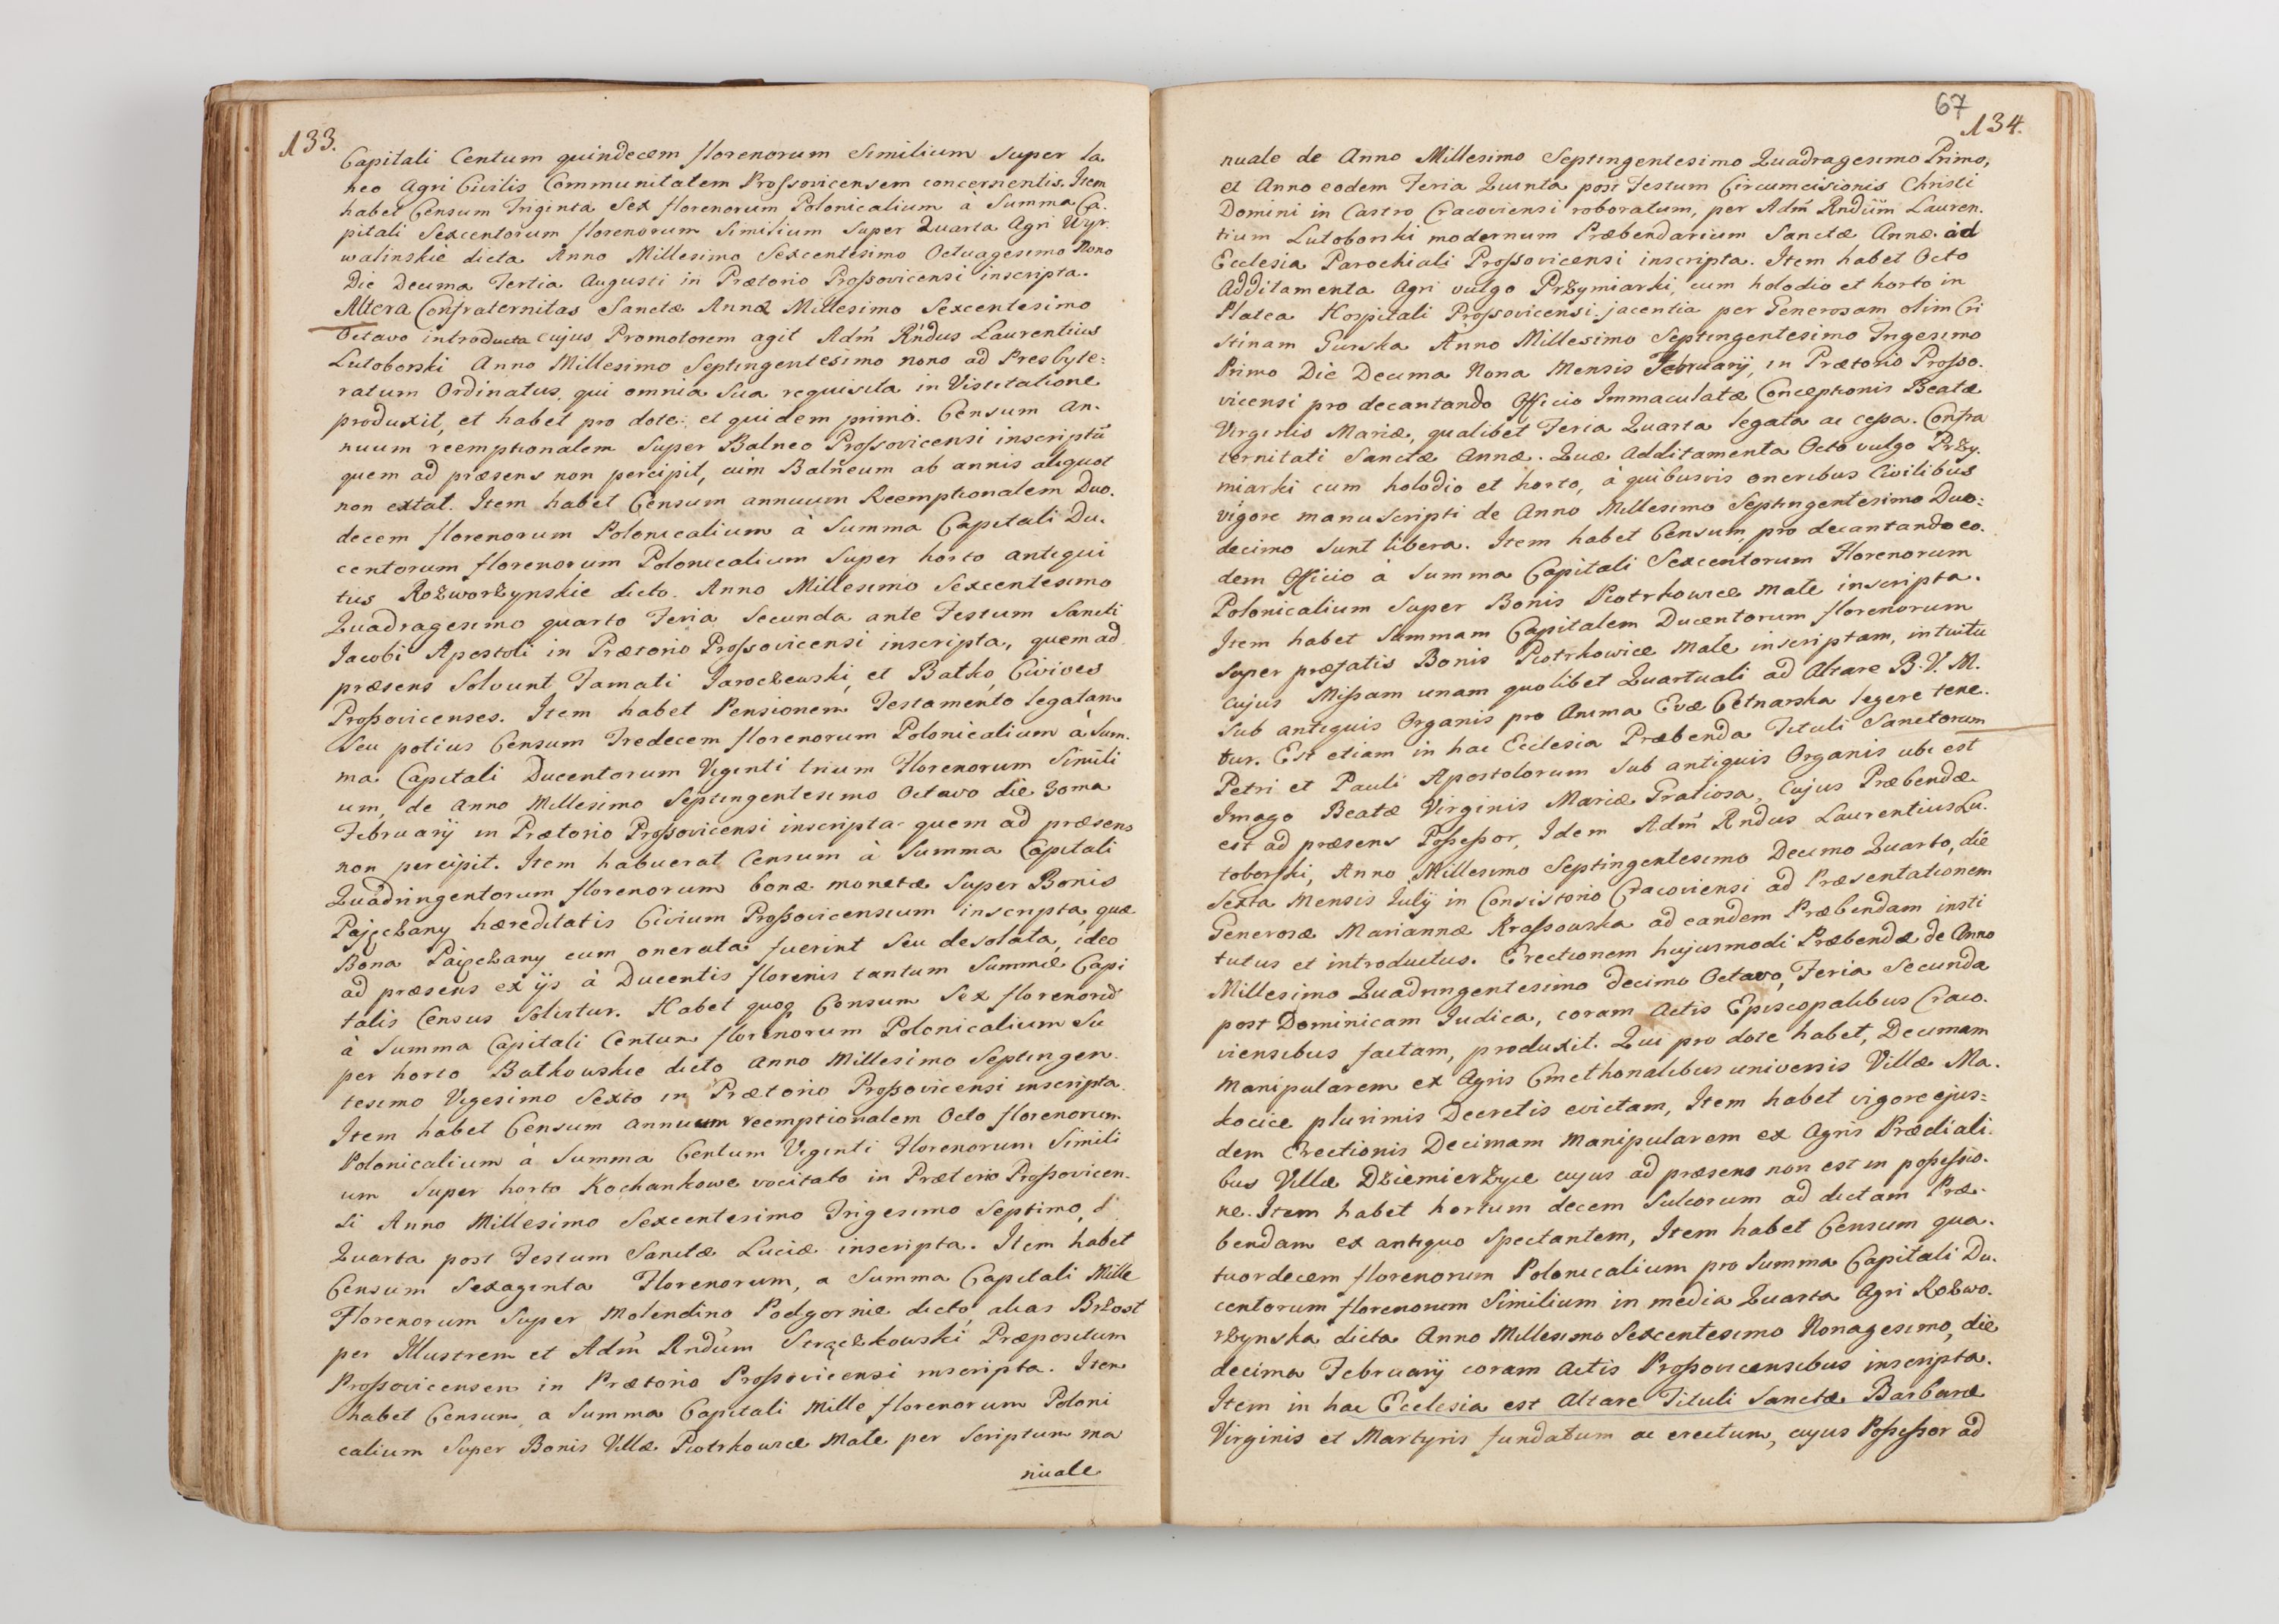 133.
Capitali Centum quindecem florenorum Similium Super La
neo Agri Civilis Communitatem Proszovicensem concernentis. Item
habet Censum Triginta Sex florenorum Polonicalium à Summa Ca.
pitali Sexcentorum florenorum Similium Super Quarta Agri Wyr.
walinskie dicta Anno Millesimo Sexcentesimo Octuagesimo Nono
Die Decima Tertia Augusti in Prætorio Proszovicensi inscripta.
Altera Confraternitas Sanctæ Annæ Millesimo Sexcentesimo
Octavo introducta cujus Promotorem agit Adm̃ Rńdus Laurentius
Lutoborski Anno Millesimo Septingentesimo nono ad Presbyte:
ratum Ordinatus, qui omnia Sua requisita in Visitatione
produxit, et habet pro dote: et quidem primò. Censum An.
nuum reemptionalem Super Balneo Proszovicensi inscriptũ
quem ad præsens non percipit, cùm Balneum ab annis aliquot
non extat. Item habet Censum annuum Reemptionalem Duo.
decem florenorum Polonicalium à Summa Capitali Du.
centorum florenorum Polonicalium Super horto antiqui
tus Rozworzynskie dicto. Anno Millesimo Sexcentesimo
Quadragesimo quarto Feria Secunda ante Festum Sancti
Jacobi Apostoli in Prætorio Proszovicensi inscripta, quem ad
præsens Solvunt Famati Jaroczewski, et Batko, Civives
Proszovicenses. Item habet Pensionem Testamento legatam
Seu potius Censum Tredecem florenorum Polonicalium à Sum.
ma Capitali Ducentorum Viginti trium Florenorum Simili
um, de Anno Millesimo Septingentesimo Octavo die 3oma
Februarij in Prætorio Proszovicensi inscripta quem ad præsens
non percipit. Item habuerat Censum à Summa Capitali
Quadringentorum florenorum bonæ monetæ Super Bonis
Pajęczany hæreditatis Civium Proszovicensium inscripta, quæ
Bona Pajęczany cum onerata fuerint Seu desolata, ideo
ad præsens ex ijs à Ducentis florenis tantum Summæ Capi
talis Census Solvitur. Habet quoq Censum Sex florenorũ
à Summa Capitali Centum florenorum Polonicalium Su
per horto Batkowskie dicto Anno Millesimo Septingen.
tesimo Vigesimo Sexto in Prætorio Proszovicensi inscripta.
Item habet Censum annuum reemptionalem Octo florenorum
Polonicalium à Summa Centum Viginti Florenorum Simili
um Super horto Kochankowe vocitato in Prætorio Proszovicen.
si Anno Millesimo Sexcentesimo Trigesimo Septimo,
Quarta post Festum Sanctæ Luciæ inscripta. Item habet
Censum Sexaginta Florenorum, a Summa Capitali Mille
Florenorum Super Molendino Podgornie dicto, alias Brzost
per Illustrem et Adm̃ Rńdum Strączkowski Præpositum
Proszovicensem in Prætorio Proszovicensi inscripta. Item
habet Censum, a Summa Capitali Mille florenorum Poloni
calium Super Bonis Villæ Piotrkowice Małe per Scriptum ma
nuale
67
134.
nuale de Anno Millesimo Septingentesimo Quadragesimo Primo,
et Anno eodem Feria Quinta post Festum Circumcisionis Christi
Domini in Castro Cracoviensi roboratum, per Adm̃ Rndũm Lauren.
tium Lutoborski modernum Præbendarium Sanctæ Annæ ad
Ecclesia Parochiali Proszovicensi inscripta. Item habet Octo
Additamenta Agri vulgo Przymiarki, cum holodio et horto in
Platea Hospitali Proszovicensi jacentia per Generosam olim Cri
stinam Gurska Anno Millesimo Septingentesimo Trigesimo
Primo Die Decima Nona Mensis Februarij, in Prætorio Proszo.
vicensi pro decantando Officio Immaculatæ Conceptionis Beatæ
Virginis Mariæ, qualibet Feria Quarta legata ac cessa. Confra
ternitati Sanctæ Annæ. Quæ Additamenta Octo vulgo Przy.
miarki cum holodio et horto, à quibusvis oneribus Civilibus
vigore manuscripti de Anno Millesimo Septingentesimo Duo:
decimo Sunt libera. Item habet Censum, pro decantando eo.
dem Officio à Summa Capitali Sexcentorum Florenorum
Polonicalium Super Bonis Piotrkowice Małe inscripta.
Item habet Summam Capitalem Ducentorum florenorum
Super præfatis Bonis Piotrkowice Małe inscriptam, intuitu
cujus Missam unam quolibet Quartuali ad Altare B. V. M.
Sub antiquis Organis pro Anima Evæ Cetnarska legere tene.
tur. Est etiam in hac Ecclesia Præbenda Tituli Sanctorum
Petri et Pauli Apostolorum Sub antiquis Organis ubi est
Imago Beatæ Virginis Mariæ Gratiosa, Cujus Præbendæ
est ad præsens Possessor, Idem Adm̃ Rndus Laurentius Lu.
toborski, Anno Millesimo Septingentesimo Decimo Quarto, die
Sexta Mensis Julij in Consistorio Cracoviensi ad Præsentationem
Generosæ Mariannæ Krassowska ad eandem Præbendam insti
tutus et introductus. Erectionem hujusmodi Præbendæ de Anno
Millesimo Quadringentesimo decimo Octavo, Feria Secunda
post Dominicam Judica, coram Actis Episcopalibus Craco.
viensibus factam, produxit. Qui pro dote habet, Decimam
Manipularem ex Agris Cmethonalibus universis Villæ Ma.
kocice plurimis Decretis evictam, Item habet vigore ejus=
dem Erectionis Decimam Manipularem ex Agris Prædiali.
bus Villæ Dziemierzyce cujus ad præsens non est in possessio.
ne. Item habet hortum decem Sulcorum ad dictam Præ.
bendam ex antiquo Spectantem, Item habet Censum qua.
tuordecem florenorum Polonicalium pro Summa Capitali Du.
centorum florenorum Similium in media Quarta Agri Rozwo.
rzynska dicta Anno Millesimo Sexcentesimo Nonagesimo, die
decima Februarij coram Actis Proszovicensibus inscripta.
Item in hac Ecclesia est Altare Tituli Sanctæ Barbaræ
Virginis et Martyris fundatum ac erectum, cujus Possessor ad